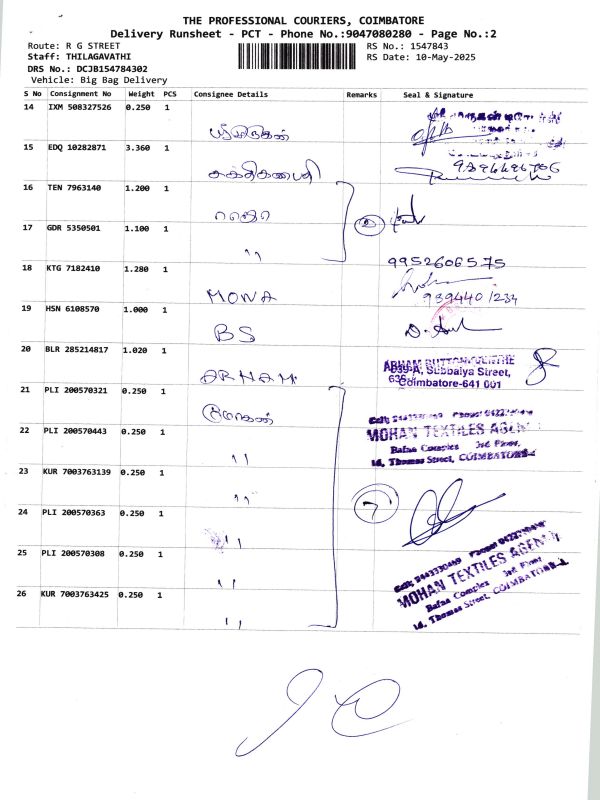 THE PROFESSIONAL COURIERS, COIMBATORE
Delivery Runsheet - PCT - Phone No.:9047080280 - Page No.:2
Route: R G STREET
Staff: THILAGAVATHI
DRS No.: DCJB154784302
Vehicle: Big Bag Delivery
RS No.: 1547843
RS Date: 10-May-2025
S No Consignment No Weight PCS Consignee Details Remarks Seal & Signature
14 IXM 508327526 0.250 1
15 EDQ 10282871 3.360 1 சக்திகணபதி
16 TEN 7963140 1.200 1
17 GDR 5350501 1.100 1 "
18 KTG 7182410 1.280 1 MONA 9952606575
9394401234
19 HSN 6108570 1.000 1 BS
20 BLR 285214817 1.020 1 ARHAM
Subbaiya Street,
Coimbatore-641 001
21 PLI 200570321 0.250 1 மோகன்
22 PLI 200570443 0.250 1 "
MOHAN TEXTILES AGENCY
Bafna Complex 3rd Floor,
Thomas Street, COIMBATORE-1
23 KUR 7003763139 0.250 1 "
7
24 PLI 200570363 0.250 1 "
25 PLI 200570308 0.250 1 "
26 KUR 7003763425 0.250 1 "
MOHAN TEXTILES AGENCY
Bafna Complex 3rd Floor
Thomas Street, COIMBATORE-1